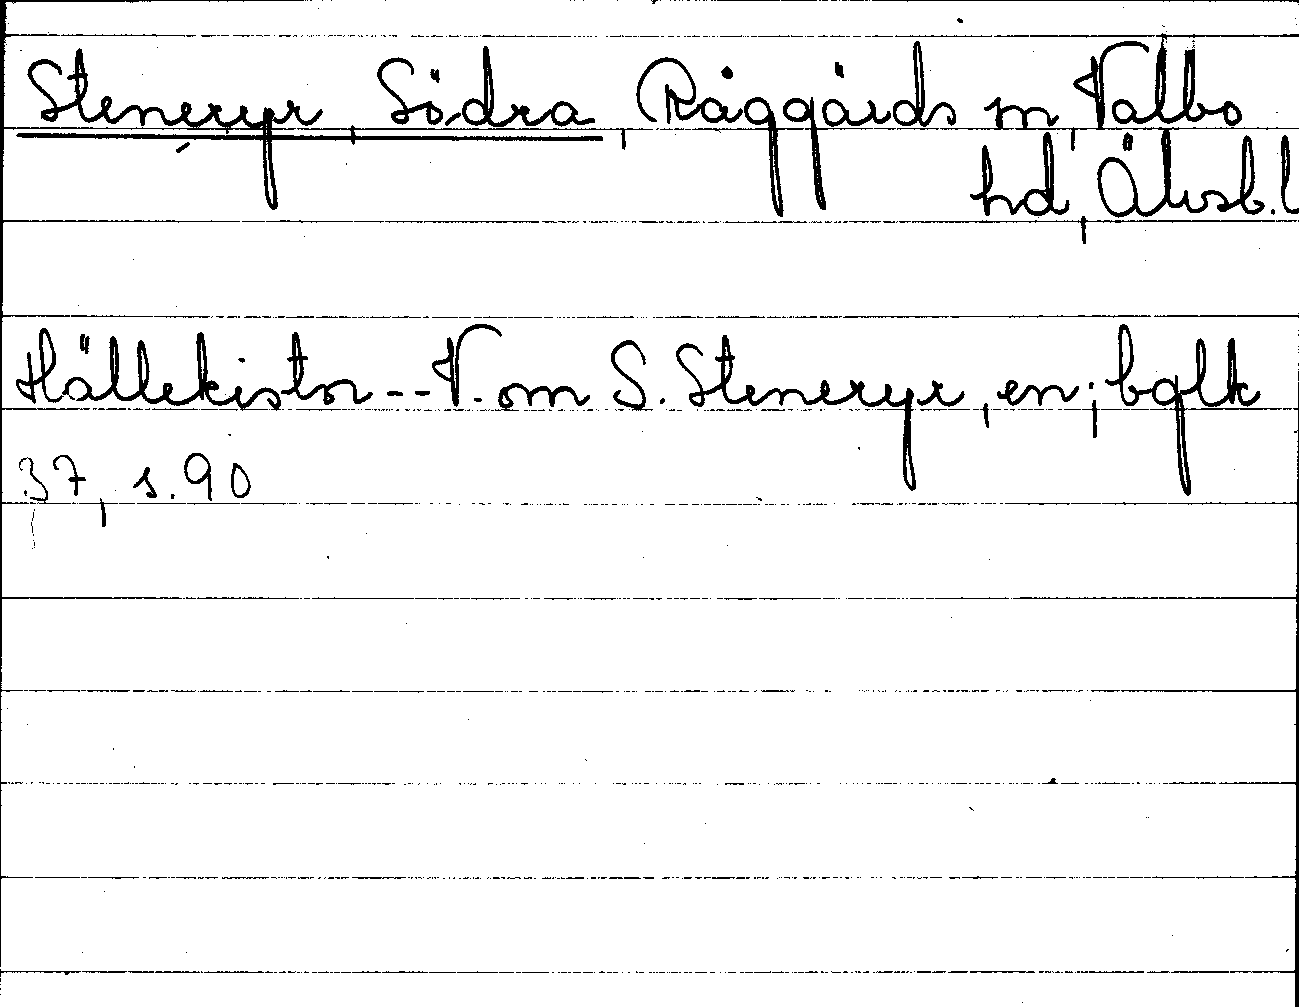 Steneryr, Södra, Råggärds sn, Valbo
hd, Älvsb. l
Hällekistor -- V. om S. Steneryr, en; bglk
37, s. 90